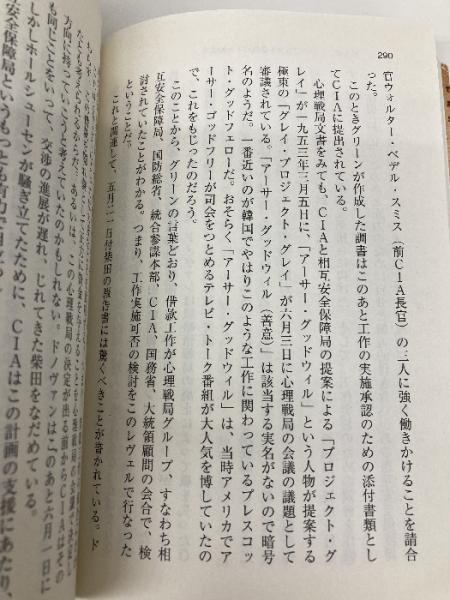 290
官ウォルター・ベデル・スミス（前CIA長官）の三人に強く働きかけることを請合
った。
このときグリーンが作成した調書はこのあと工作の実施承認のための添付書類とし
てCIAに提出されている。
心理戦局文書をみても、CIAと相互安全保障局の提案による「プロジェクト・グ
レイ」が一九五三年三月五日に、「アーサー・グッドウィル」という人物が提案する
極東の「グレイ・プロジェクト・グレイ」が六月三日に心理戦局の会議の議題として
審議されている。「アーサー・グッドウィル（善意）」は該当する実名がないので暗号
名のようだ。一番近いのが韓国でやはりこのような工作に関わっているプレスコッ
ト・グッドフェローだ。おそらく「アーサー・グッドウィル」は、当時アメリカでア
ーサー・ゴッドフリーが司会をつとめるテレビ・トーク番組が大人気を博していたの
で、これをもじったのだろう。
このことから、グリーンの言葉どおり、借款工作が心理戦局グループ、すなわち相
互安全保障局、国防総省、統合参謀本部、CIA、国務省、大統領顧問の会合で、検
討されていたことがわかる。つまり、工作実施可否の検討をこのレヴェルで行なった
これと関連して、五月三一日付柴田の報告書には驚くべきことが書かれている。ド
の心理戦局の決定が出る前からCIAはその
方向に持っていこうと考えていたのかもしれない。ドノヴァンはこのあと六月一日に
も同じことをいって、交渉の進展が遅れ、じれてきた柴田をなだめている。
しかしホールシューセンが騒ぎ立てたために、CIAはこの計画の支援にあたり、
安全保障局というもっとも有力で目立つ